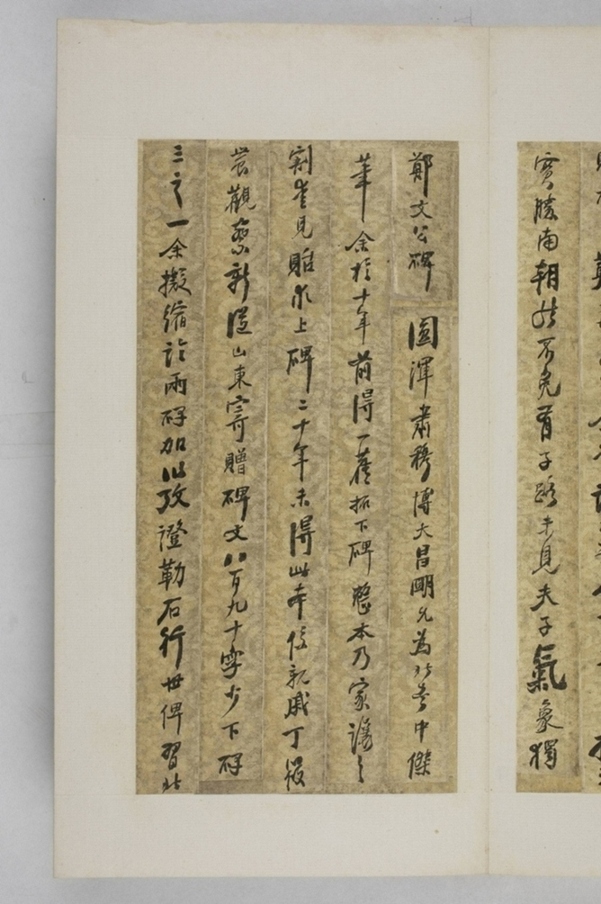 實勝南朝然不免有子路未見夫子氣象獨
鄭文公碑圓渾肅穆博大昌明允為北書中傑
筆余於十年前得一舊拓下碑整本乃家讓之
割愛見貽求上碑二十年未得此本係親戚丁筱
農觀察新從山東寄贈碑文八百九十字少下碑
三之一余擬縮臨兩碑加以攷證勒石行世俾習北